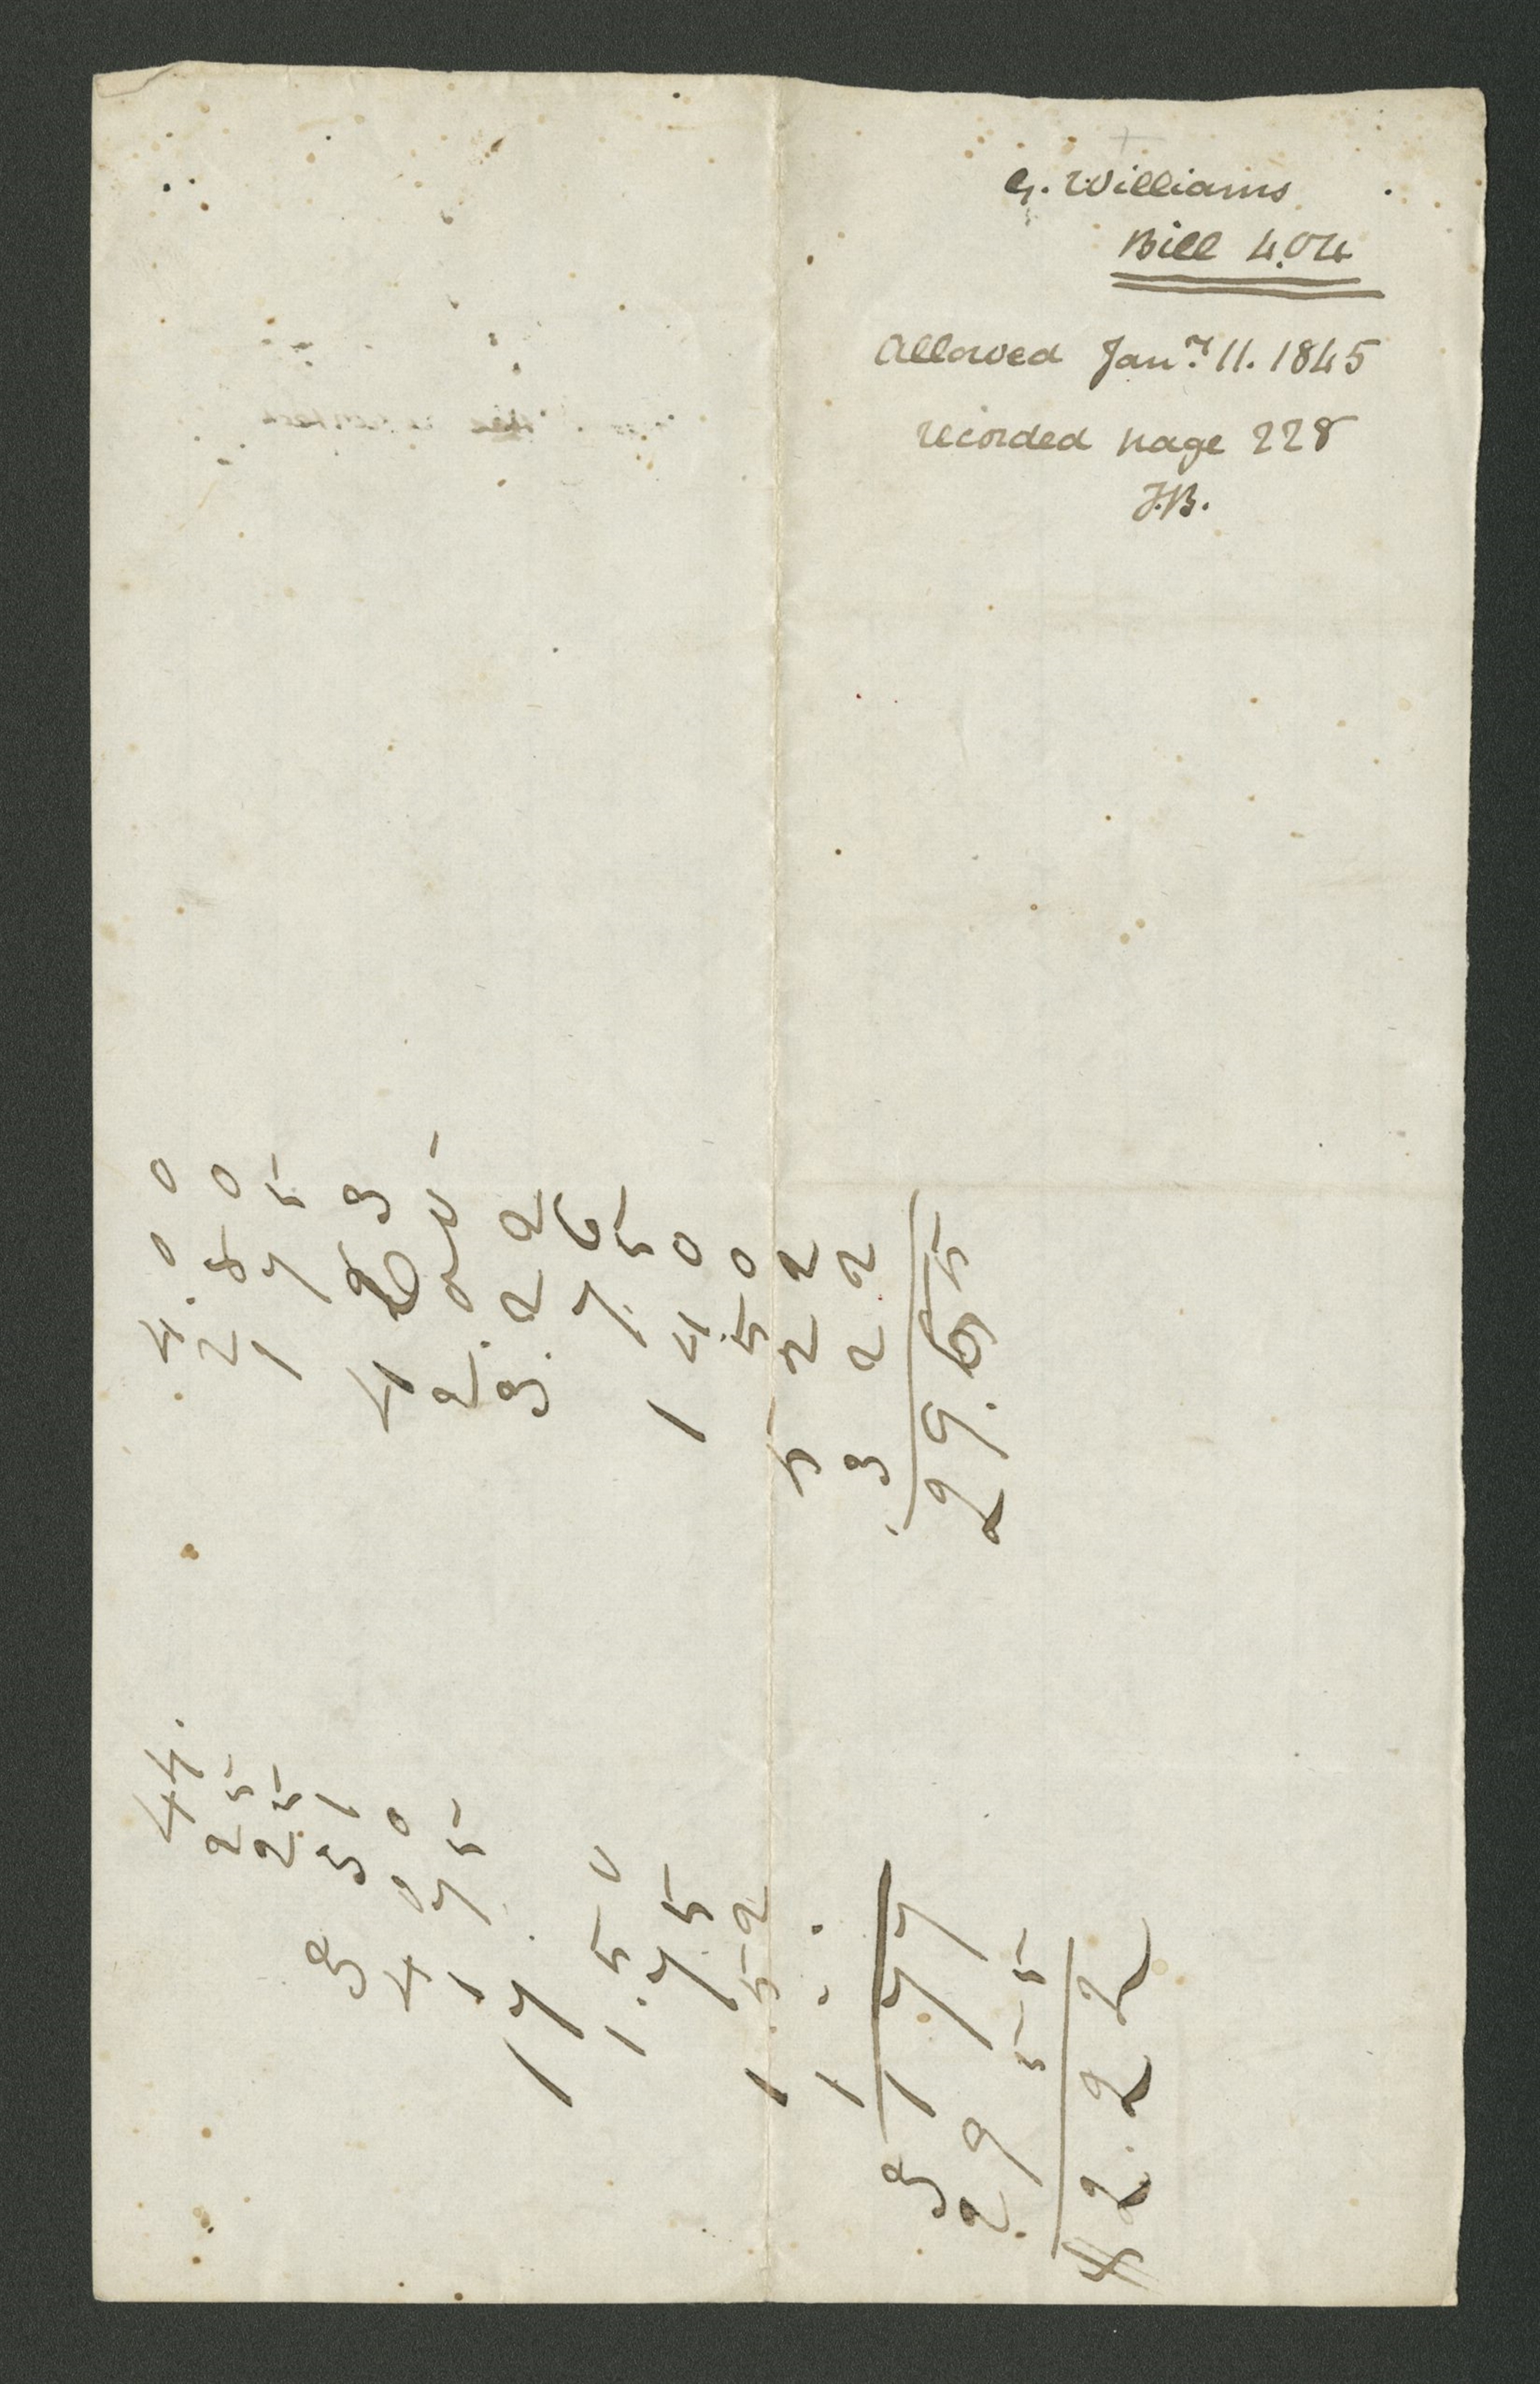 G. Williams
Bill 4.04
Allowed Jany. 11. 1845
recorded page 228
J.B.
4.00
2.80
1 75
3.22
75
1 40
.50
5 22
3 22
29.65
44.
25
25
3 31
4 00
1 75
17.
1.50
1.75
1.52
1 . .
31 77
29 55
#2.22